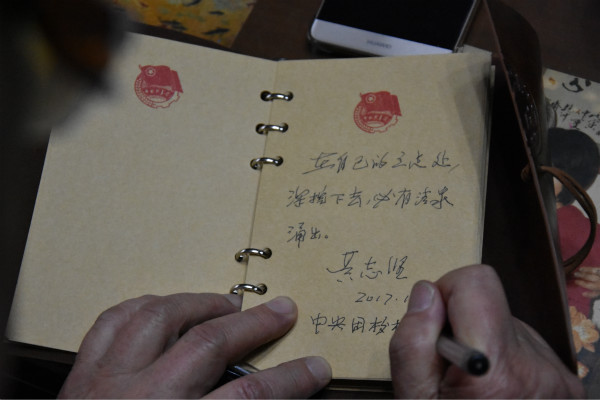 HUAWEI
在自己的立足处,
深掘下去,必有清泉
涌出。
黄志坚
2017.1
中央团校